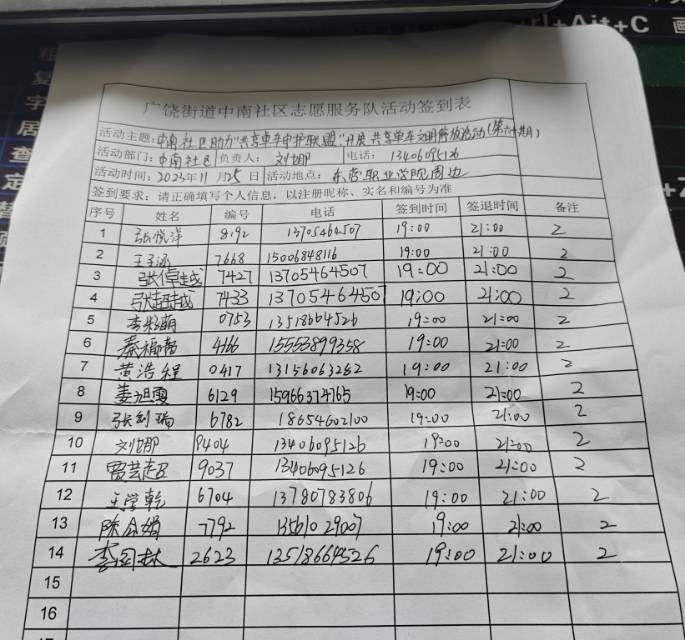 Ctrl+Alt+C 画
广饶街道中南社区志愿服务队活动签到表
活动主题: 中南社区助力"共享单车守护联盟"开展共享单车文明停放活动(第六十期)
活动部门: 中南社区 负责人: 刘娜 电话: 13406095126
活动时间: 2023年11月25日 活动地点: 东营职业学院周边
签到要求: 请正确填写个人信息,以注册昵称、实名和编号为准
序号 姓名 编号 电话 签到时间 签退时间 备注
1 张悦洋 8192 13705464507 19:00 21:00 2
2 王子涵 7668 15006848116 19:00 21:00 2
3 张倬越 7427 13705464507 19:00 21:00 2
4 张超越 7433 13705464507 19:00 21:00 2
5 0753 13518664526 19:00 21:00 2
6 秦福苗 4166 15563899358 19:00 21:00 2
7 黄浩程 0417 13156063252 19:00 21:00 2
8 姜旭霞 6129 15966374765 19:00 21:00 2
9 张剑瑞 6782 18654602100 19:00 21:00 2
10 刘娜 9404 13406095126 19:00 21:00 2
11 贾芸超 9037 13406095126 19:00 21:00 2
12 王学乾 6704 13780783806 19:00 21:00 2
13 陈会娟 7792 13561029007 19:00 21:00 2
14 李国林 2623 13518664526 19:00 21:00 2
15
16